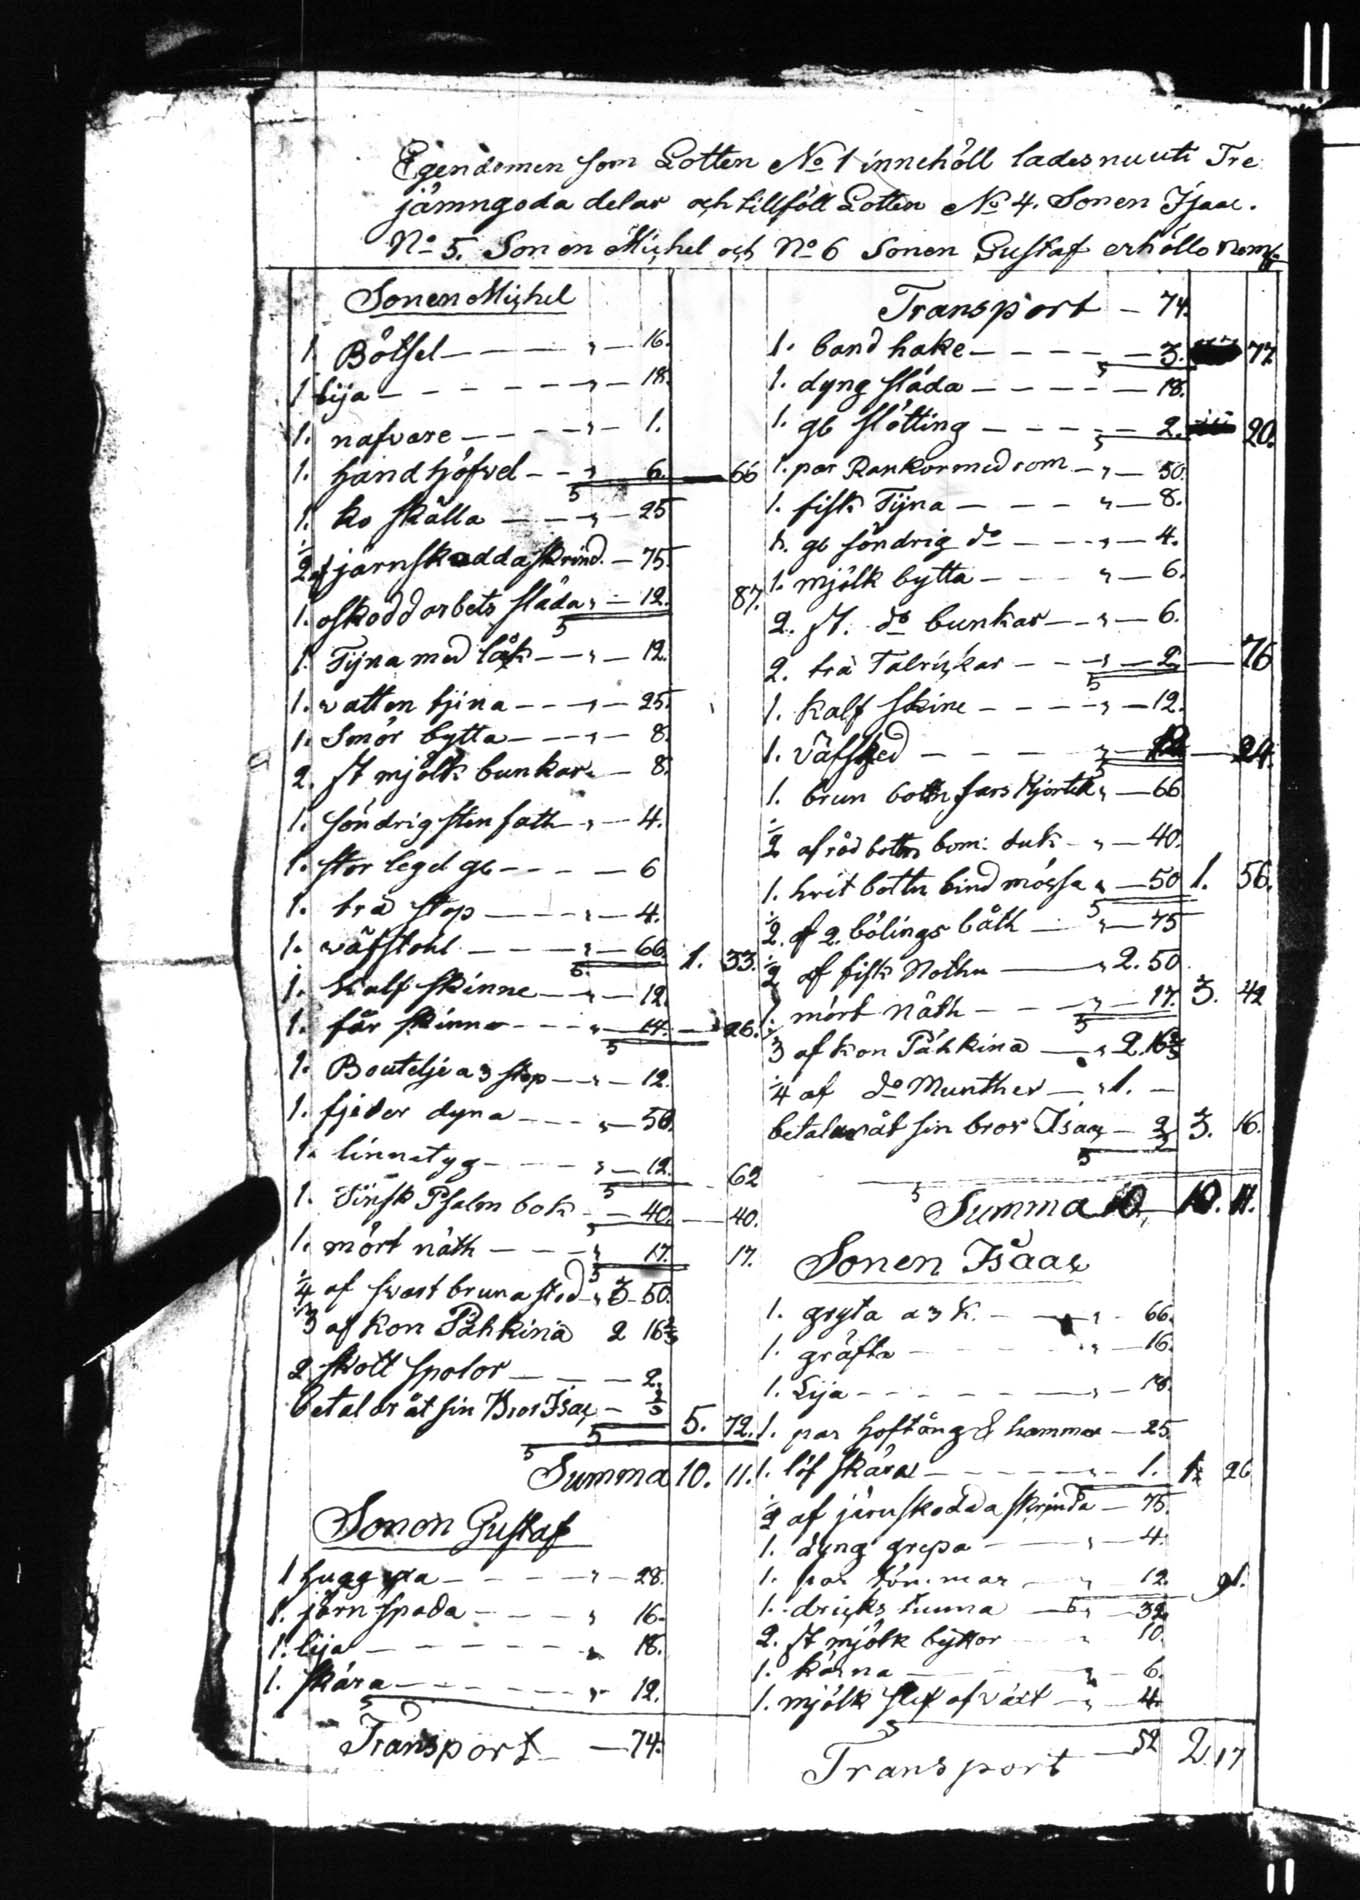 Egendomen som Lotten No 1 innehöll lades nu uti Tre
jämngoda delar och tillföll Lotten No 4. Sonen Isaac.
No 5. Sonen Michel och No 6 Sonen Gustaf erhöllo neml.
Sonen Michel
1. Bötsel — " — 16.
1 lija — " — 18.
1. nafvare — " — 1.
1. handhjöfvel — " 6. — 66
1. ko skälla — " — 25
1/2 af järnskodda skrind. — 75.
1. oskodd arbets släda " — 12. 87.
1. Tijna med låk — " — 12.
1. vatten tjina — " — 25.
1. Smör bytta — " — 8.
2. st mjölk bunkar " — 8.
1. söndrig sten fath — " — 4.
1. stor legel gl — 6
1. trä stop — " — 4.
1. väfstohl — " — 66 1. 33.
1. kalf skinne — " — 12.
1. får skinne — " — 14. — 26.
1. Boutelje a 3 stop — " — 12.
1. fjeder dyna — " — 38.
1. linnetyg — " — 12. 62
1. Finsk Psalm bok — — 40. — 40.
1. mört näth — " 17. 17.
1/4 af svart bruna stod — " 3 — 50.
1/3 af kon Pähkinä 2 16 2/3
2 skott spolor — 2.
betalar åt sin Bror Isac — 2/3 5. 72.
Summa 10. 11.
Sonen Gustaf
1 hugg yxa — " — 28.
1. järn spada — " 16.
1. lija — " 18.
1. skära — " 12.
Transport — 74.
Transport — 74.
1. band hake — 3. 77.
1. dyng släda — 18.
1. gl slötting — 2. 20.
1. par Rankor med rem — " — 50.
1. fisk Tijna — " — 8.
1. gl söndrig do — " — 4.
1. mjölk bytta — " — 6.
2. st. do bunkar — " — 6.
2. trä Talrickar — " — 2. — 76
1. kalf skine — " — 12.
1. Väfsked — " — 12 — 24.
1. brun bottn fars kjortel " — 66
1/2 af röd bottn bom: duk — " — 40.
1. hvit bottn bind mössa " — 50 1. 56.
1/2 af 2. bölings båth — " — 75
1/2 af fisk Nothn — " 2. 50
1 mört näth — " — 17. 3. 42
1/3 af kon Pähkinä — " 2. 16 2/3
1/4 af do Munther — " 1. —
betalar åt sin bror Isac — 2/3 3. 16.
Summa 10. 11.
Sonen Isaac
1. gryta a 3 k. — " 66.
1. gräfta — " — 16.
1. Lija — " — 18.
1. par hoftång & hammar — 25
1. löf skära — " — 1. 1. 26
1/2 af järnskodda skrinda — 75.
1. dyng grepa — " 4.
1. par tömmar — " 12. 91.
1. dricks tunna — " — 32.
2. st mjölk byttor " 10.
1. kärna — " — 6.
1. mjölk slef af värt — " — 4.
Transport — 52 2. 17